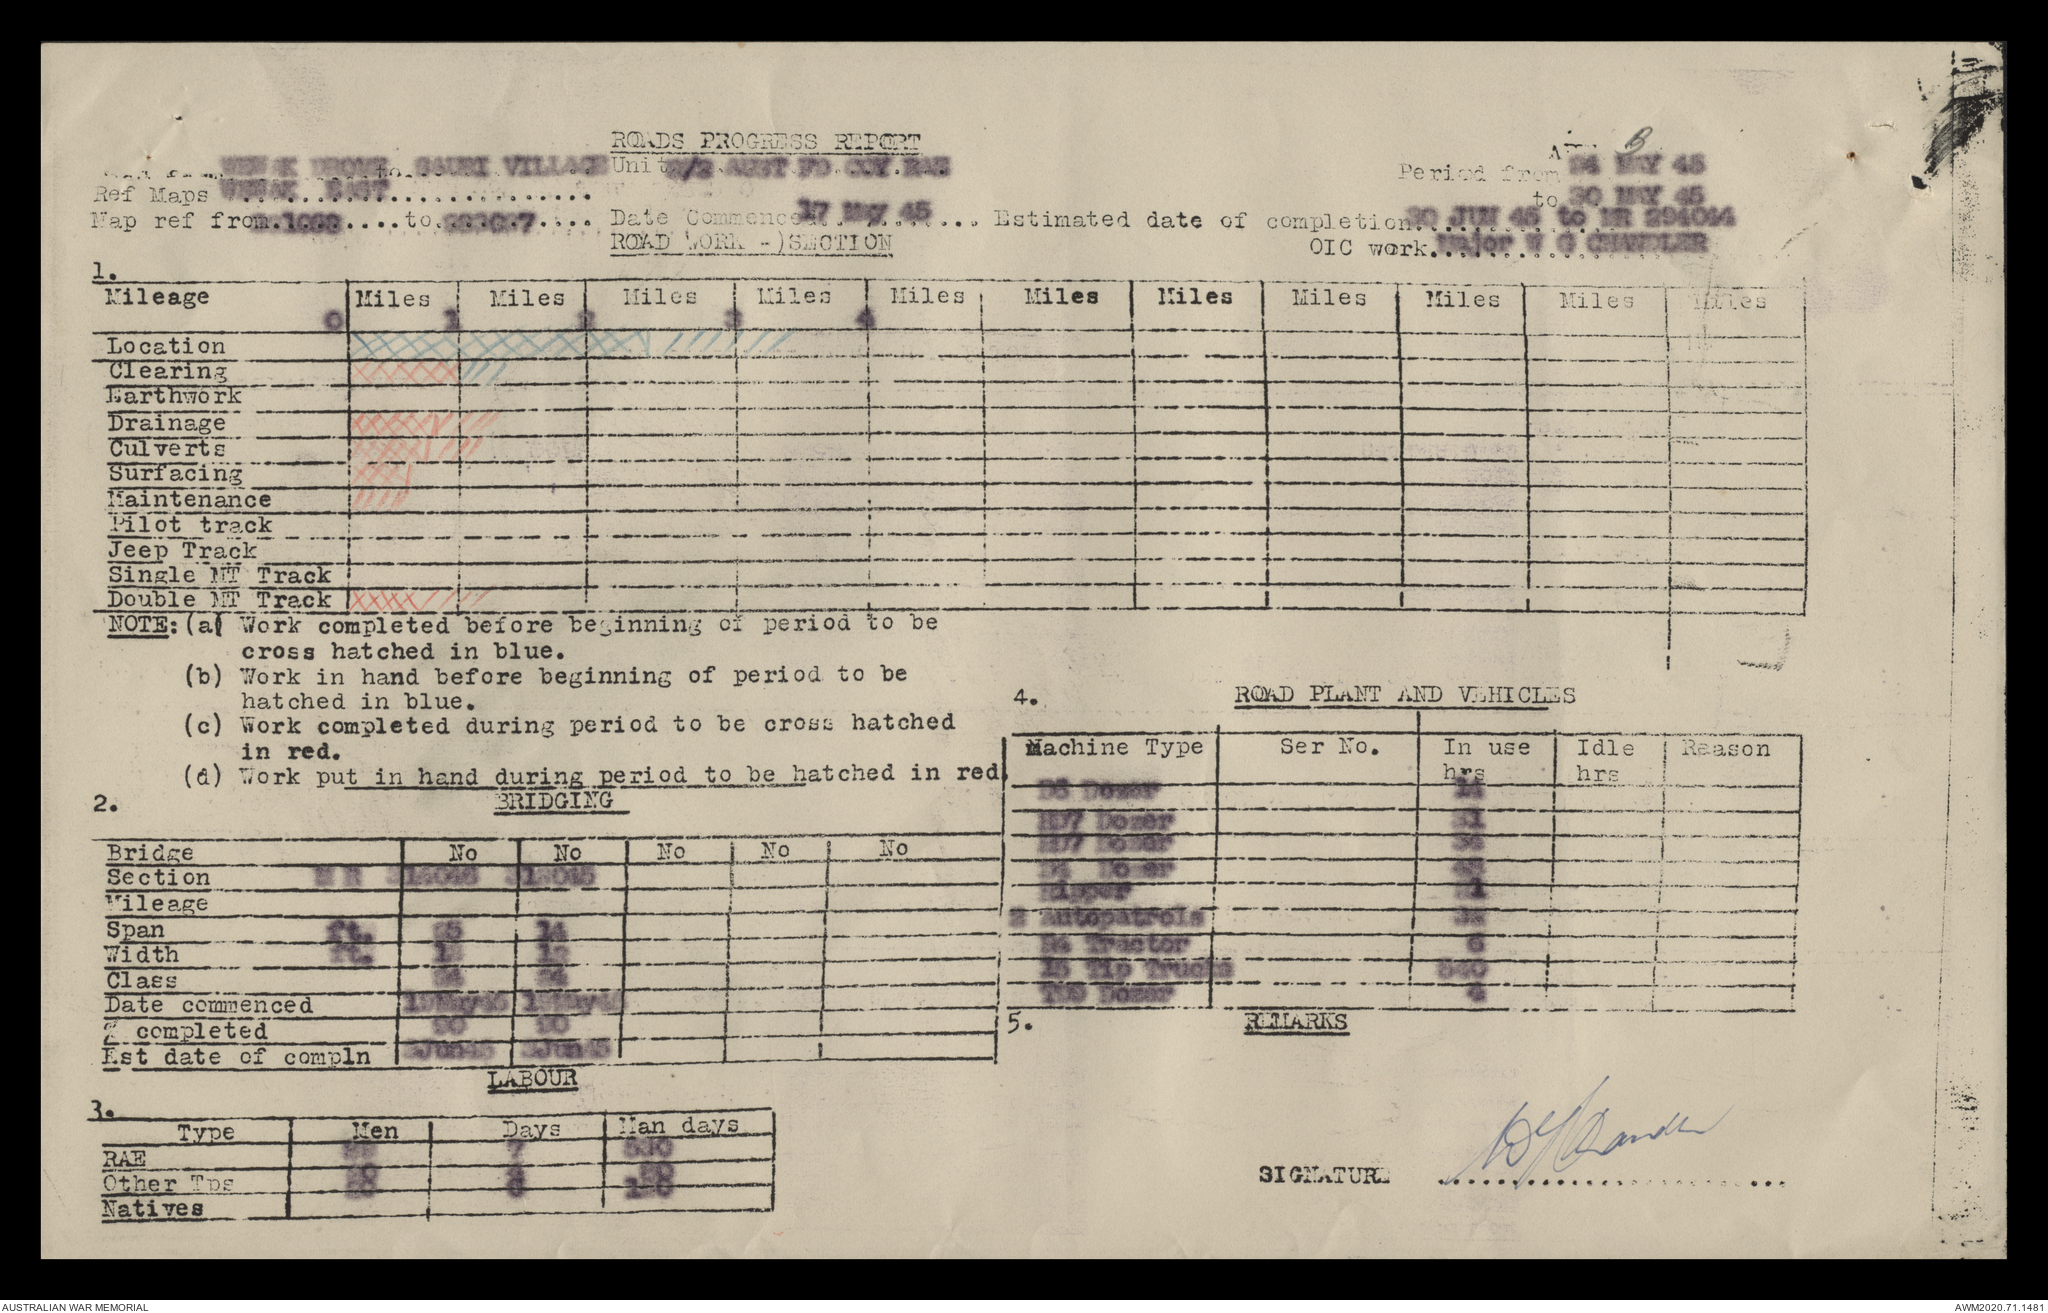 ROADS PROGRESS REPORT
B
WEWAK DROME to SAURI VILLAGE Unit 2/2 AUST FD COY RAE Period from 24 MAY 45
Ref Maps WEWAK EAST to 30 MAY 45
Map ref from to Date Commence 17 May 45 Estimated date of completion 30 JUN 45 to MR 294014
ROAD WORK - SECTION OIC work Major W G CHANDLER
1.
Mileage Miles Miles Miles Miles Miles Miles Miles Miles Miles Miles Miles
0 1 2 3 4
Location
Clearing
Earthwork
Drainage
Culverts
Surfacing
Maintenance
Pilot track
Jeep Track
Single MT Track
Double MT Track
NOTE: (a) Work completed before beginning of period to be
cross hatched in blue.
(b) Work in hand before beginning of period to be
hatched in blue.
(c) Work completed during period to be cross hatched
in red.
(d) Work put in hand during period to be hatched in red.
2. BRIDGING
Bridge No No No No No
Section M R
Mileage
Span ft. 14
Width ft.
Class 24 24
Date commenced 19May45 19May45
% completed 90 90
Est date of compln 3Jun45 3Jun45
LABOUR
3.
Type Men Days Man days
RAE 7
Other Tps
Natives
4. ROAD PLANT AND VEHICLES
Machine Type Ser No. In use hrs Idle hrs Reason
D6 Dozer 14
HD7 Dozer
HD7 Dozer
D4 Dozer
Ripper
2 Autopatrols
D4 Tractor 6
15 Tip Trucks 540
TD9 Dozer 4
5. REMARKS
SIGNATURE W G Chandler
AUSTRALIAN WAR MEMORIAL AWM2020.71.1481